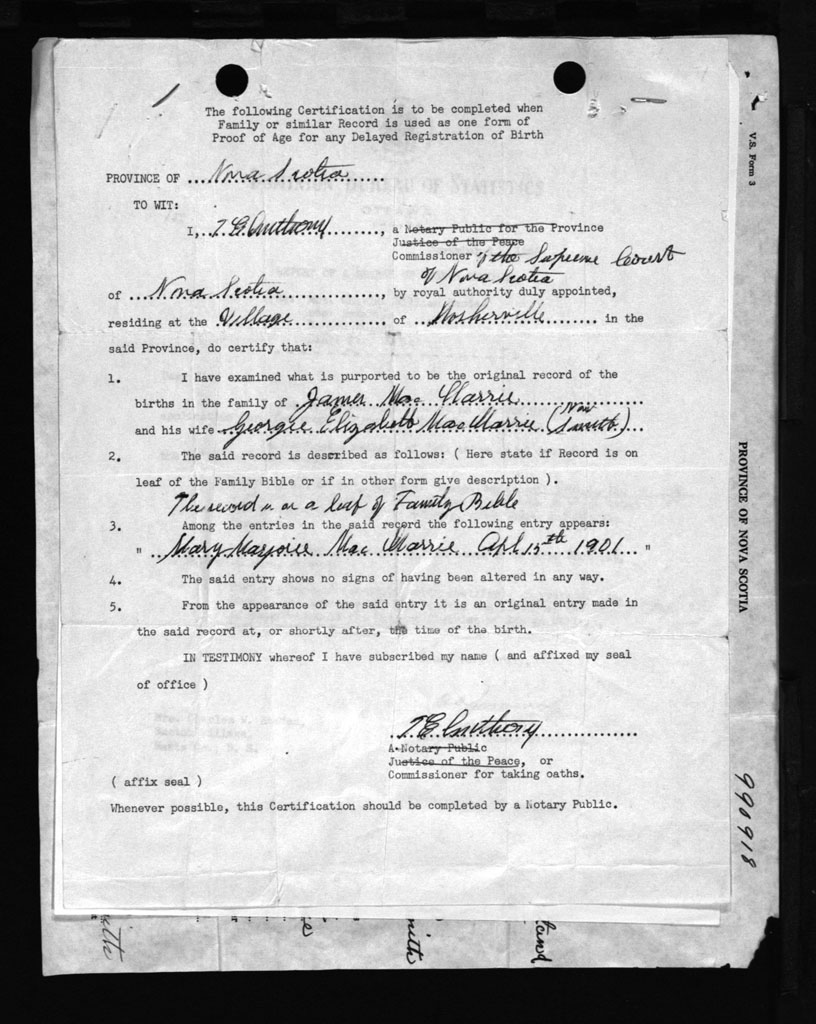 The following Certification is to be completed when
Family or similar Record is used as one form of
Proof of Age for any Delayed Registration of Birth
PROVINCE OF ...Nova Scotia.......
TO WIT:
I, ..T. E. Anthony........, a Notary Public for the Province
Justice of the Peace
Commissioner of the Supreme Court
of Nova Scotia
of ...Nova Scotia..............., by royal authority duly appointed,
residing at the Village............... of ...Mosherville........ in the
said Province, do certify that:
1. I have examined what is purported to be the original record of the
births in the family of ..James Mac Harrie..................
and his wife Georgie Elizabeth MacHarrie (Now Smith)...
2. The said record is described as follows: ( Here state if Record is on
leaf of the Family Bible or if in other form give description ).
The record is on a leaf of Family Bible
3. Among the entries in the said record the following entry appears:
" ..Mary Marjorie Mac Harrie Apl 15th 1901... "
4. The said entry shows no signs of having been altered in any way.
5. From the appearance of the said entry it is an original entry made in
the said record at, or shortly after, the time of the birth.
IN TESTIMONY whereof I have subscribed my name ( and affixed my seal
of office )
..T. E. Anthony................
A Notary Public
Justice of the Peace, or
( affix seal ) Commissioner for taking oaths.
Whenever possible, this Certification should be completed by a Notary Public.
V.S. Form 3
PROVINCE OF NOVA SCOTIA
990918